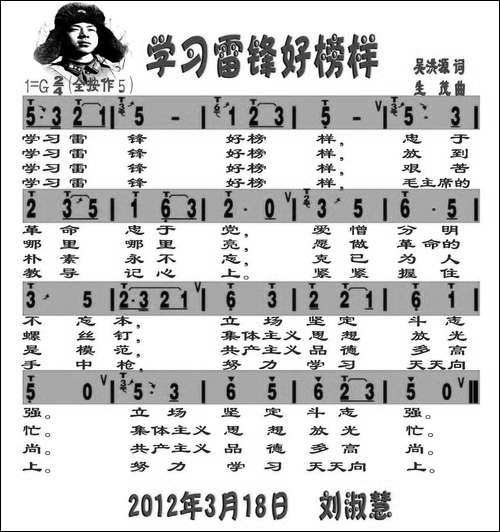 学习雷锋好榜样
吴洪源 词
1=G 2/4 (全按作5)
生 茂 曲
5·3 2 1 | 5 - | 1 2 3 | 5 - | 5· 3 |
学习雷 锋 好榜 样, 忠 于
学习雷 锋 好榜 样, 放 到
学习雷 锋 好榜 样, 艰 苦
学习雷 锋 好榜 样, 毛主席的
2 3 5 | 1 6 3 | 2· 0 | 3 5 | 6· 5 |
革 命 忠 于 党, 爱 憎 分 明
哪 里 哪 里 亮, 愿 做 革命的
朴 素 永 不 忘, 克 己 为 人
教 导 记 心 上。 紧 紧 握 住
3 5 | 2·3 2 1 | 6 3 | 2 2 1 | 6 1 |
不 忘 本, 立 场 坚 定 斗 志
螺 丝 钉, 集体主义 思 想 放 光
是 模 范, 共产主义 品 德 多 高
手 中 枪, 努 力 学 习 天天向
5 0 | 5· 3 | 6 5 | 6 2 3 | 5 0
强。 立 场 坚 定 斗 志 强。
忙。 集体主义 思 想 放 光 忙。
尚。 共产主义 品 德 多 高 尚。
上。 努 力 学 习 天天向 上。
2012年3月18日 刘淑慧